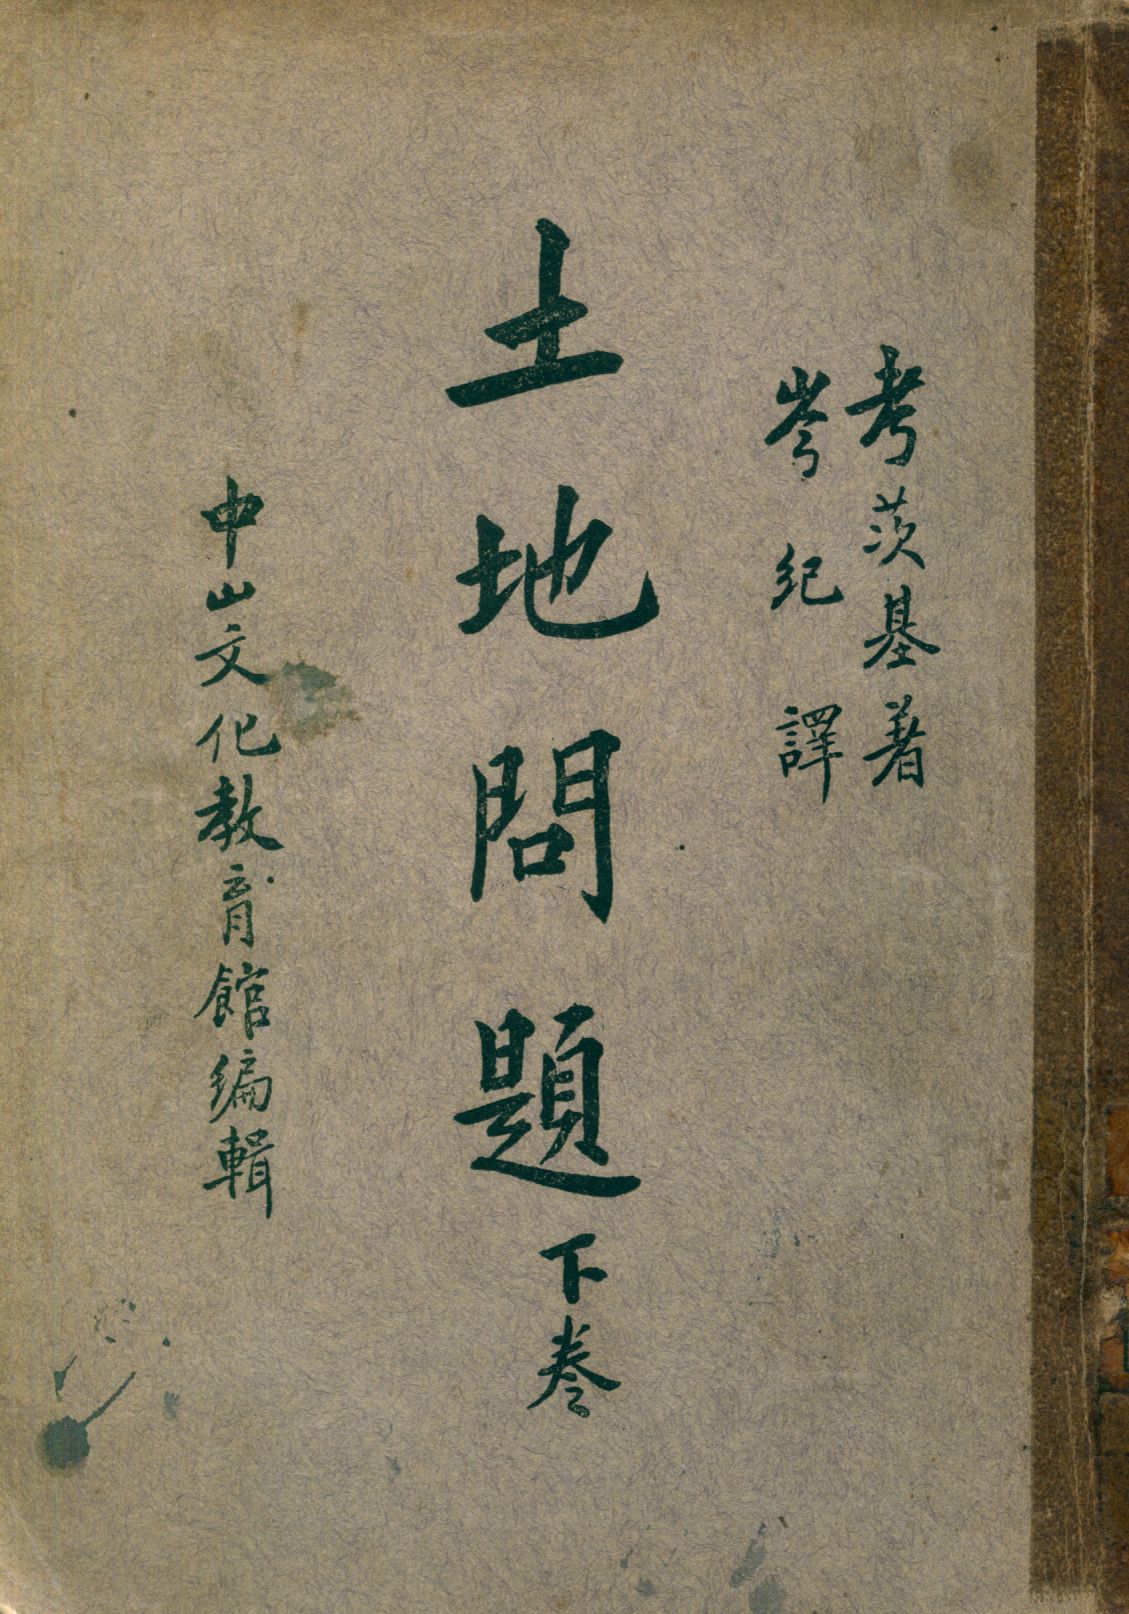 考茨基著
岑紀譯
土地問題下卷
中山文化教育館編輯